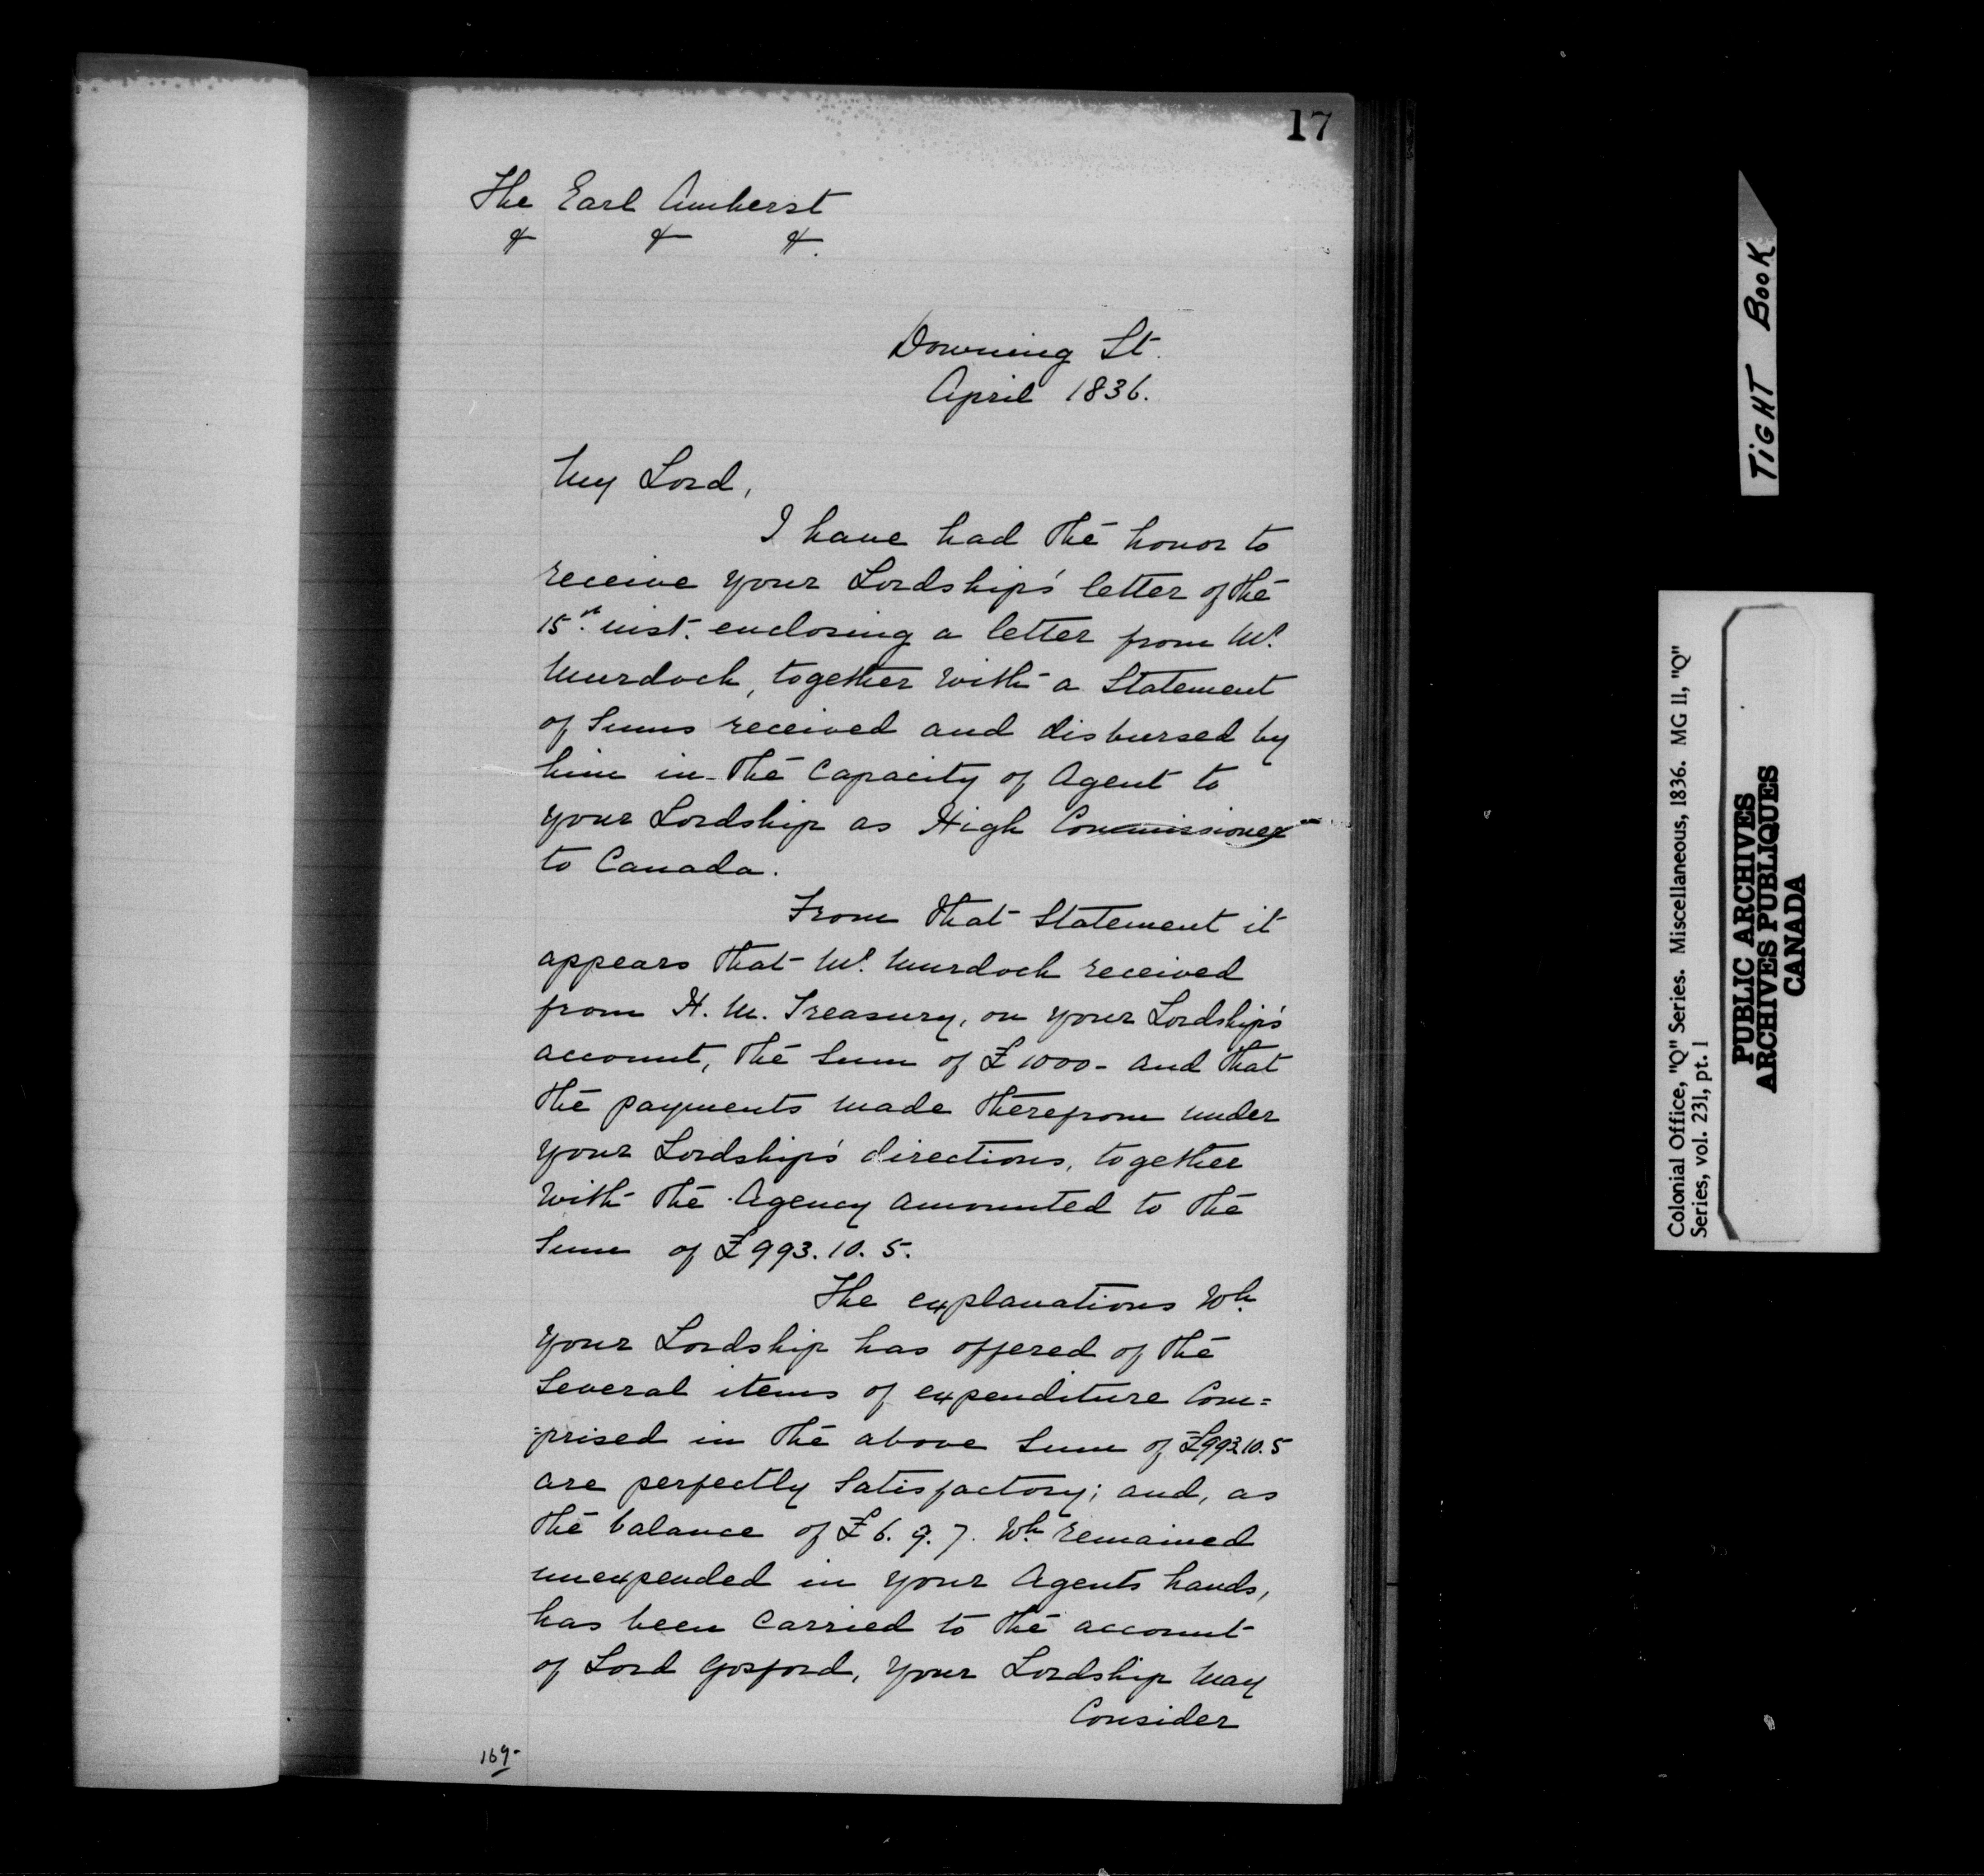 17
The Earl Amherst
& & &.
Downing St.
April 1836.
My Lord,
I have had the honor to
receive your Lordship's letter of the
15th. inst. enclosing a letter from Mr.
Murdoch, together with a Statement
of Sums received and disbursed by
him in the Capacity of Agent to
your Lordship as High Commissioner
to Canada.
From that Statement it
appears that Mr. Murdoch received
from H. M. Treasury, on your Lordship's
account, the Sum of £1000- and that
the payments made therefrom under
your Lordship's directions, together
with the Agency amounted to the
Sum of £993.10.5.
The explanations wh.
your Lordship has offered of the
Several items of expenditure Com=
=prised in the above Sum of £993.10.5
are perfectly Satisfactory; and, as
the balance of £6.9.7. wh. remained
unexpended in your Agents hands,
has been Carried to the account
of Lord Gosford, your Lordship may
Consider
169-
TiGHT BooK
Colonial Office, "Q" Series. Miscellaneous, 1836. MG 11, "Q"
Series, vol. 231, pt. 1
PUBLIC ARCHIVES
ARCHIVES PUBLIQUES
CANADA